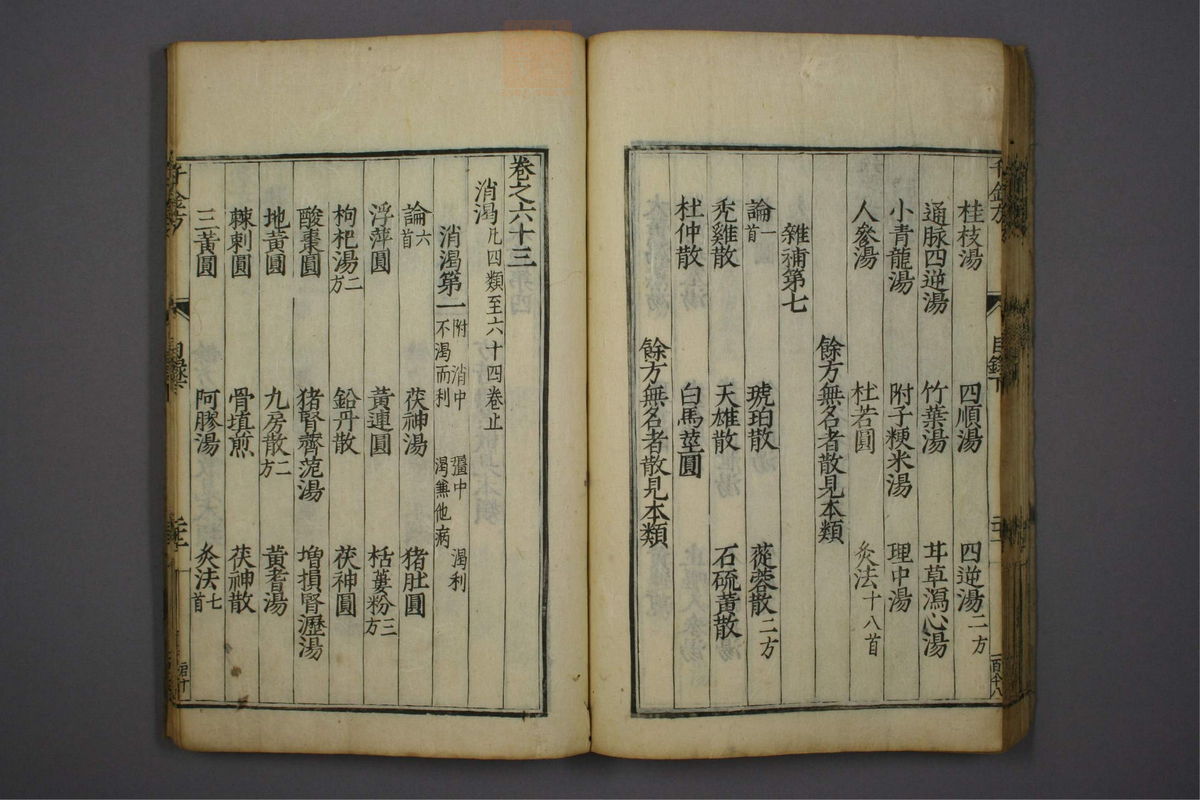 桂枝湯 四順湯 四逆湯二方
通脉四逆湯 竹葉湯 甘草瀉心湯
小青龍湯 附子粳米湯 理中湯
人參湯 杜若圓 灸法十八首
餘方無名者散見本類
雜補第七
論一首 琥珀散 蓯蓉散二方
禿雞散 天雄散 石硫黃散
杜仲散 白馬莖圓
餘方無名者散見本類
卷之六十三
消渴凡四類至六十四卷止
消渴第一附 消中 彊中 渴利 不渴而利 渴兼他病
論六首 茯神湯 猪肚圓
浮萍圓 黃連圓 栝蔞粉三方
枸杞湯二方 鉛丹散 茯神圓
酸棗圓 猪腎薺苨湯 増損腎瀝湯
地黃圓 九房散二方 黃耆湯
棘刺圓 骨填煎 茯神散
三黃圓 阿膠湯 灸法七首
千金方 目錄下
千金方 目錄下